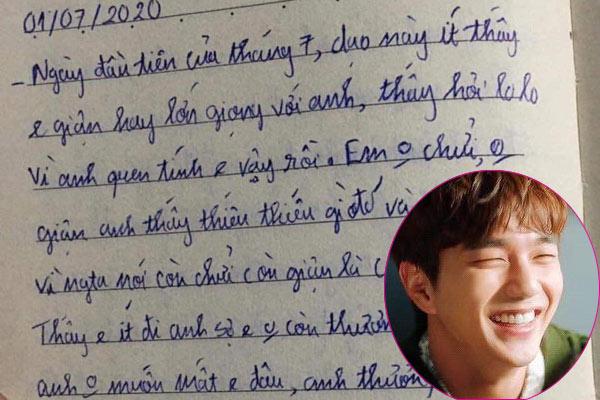 01/07/2020
- Ngày đầu tiên của tháng 7, dạo này ít thấy
e giận hay lớn giọng với anh, thấy hơi lo lo
vì anh quen tính e vậy rồi. Em o chửi, o
giận anh thấy thiếu thiếu gì đó và
vì ngta nói còn chửi còn giận là c
Thấy e ít đi anh sợ e o còn thương
anh o muốn mất e đâu, anh thương